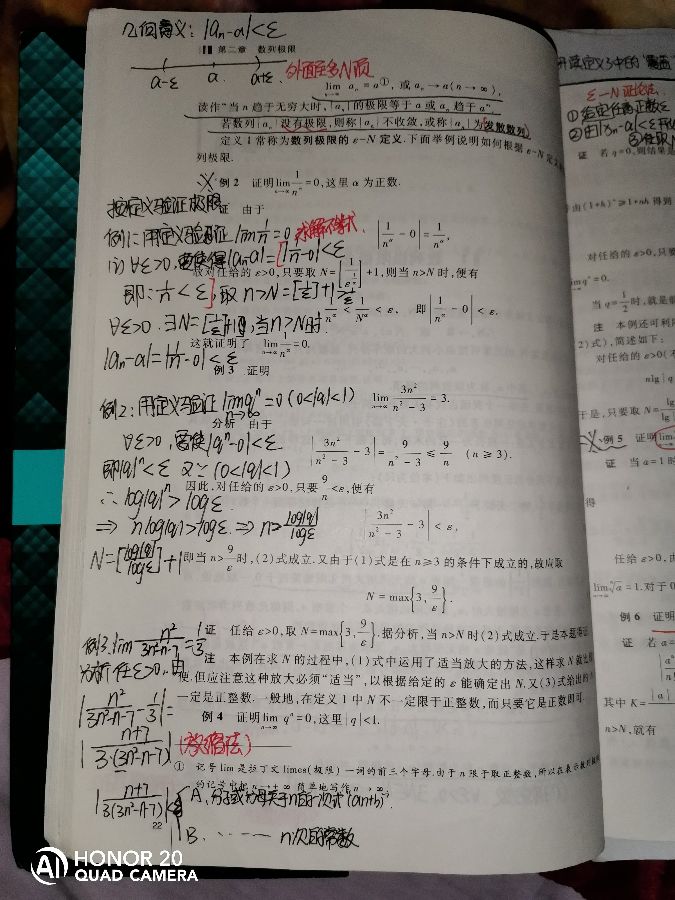 几何意义: |aₙ-a|<ε
第二章 数列极限
a-ε a a+ε 外面至多N项
lim aₙ = a①, 或 aₙ→a(n→∞),
n→∞
读作"当 n 趋于无穷大时,{aₙ}的极限等于 a 或 aₙ 趋于 a".
若数列{aₙ}没有极限,则称{aₙ}不收敛,或称{aₙ}为发散数列.
定义 1 常称为数列极限的 ε-N 定义.下面举例说明如何根据 ε-N 定义
列极限.
例 2 证明 lim 1/n^α = 0,这里 α 为正数.
按定义验证极限
证 由于
例1: 用定义验证 lim 1/n = 0 求解不等式
|1/n^α - 0| = 1/n^α,
(1) ∀ε>0, 要使得|aₙ-a|=[|1/n-0|<ε
故对任给的 ε>0,只要取 N=[1/ε^(1/α)]+1,则当 n>N 时,便有
即: 1/n<ε], 取 n>N=[1/ε]+1>1/ε
1/n^α < 1/N^α < ε, 即 |1/n^α - 0| < ε.
∀ε>0. ∃N=[1/ε]+1, 当n>N时.
这就证明了 lim 1/n^α = 0.
|aₙ-a|=|1/n-0|<ε
例 3 证明
例2: 用定义验证 lim qⁿ=0 (0<|q|<1)
n→∞
lim 3n²/(n²-3) = 3.
n→∞
分析 由于
∀ε>0, 要使|qⁿ-0|<ε.
|3n²/(n²-3) - 3| = 9/(n²-3) ≤ 9/n (n≥3).
即|q|ⁿ<ε 又∵(0<|q|<1)
因此,对任给的 ε>0,只要 9/n<ε,便有
∴ log|q|ⁿ>logε
|3n²/(n²-3) - 3| < ε,
⇒ nlog|q|>logε. ⇒ n>log|q|/logε
N=[log|q|/logε]+1
即当 n>9/ε 时,(2)式成立.又由于(1)式是在 n≥3 的条件下成立的,故应取
N = max{3, 9/ε}.
例3. lim n²/(3n²-n-7)=1/3
证 任给 ε>0,取 N=max{3, 9/ε}.据分析,当 n>N 时(2)式成立.于是本题得证
分析 任ε>0, 由
注 本例在求 N 的过程中,(1)式中运用了适当放大的方法,这样求 N 就比较
便.但应注意这种放大必须"适当",以根据给定的 ε 能确定出 N.又(3)式给出的
|n²/(3n²-n-7) - 1/3|=
一定是正整数.一般地,在定义 1 中 N 不一定限于正整数,而只要它是正数即可.
例 4 证明 lim qⁿ=0,这里|q|<1.
|(n+7)/(3·(3n²-n-7))| (放缩法)
① 记号 lim 是拉丁文 limes(极限)一词的前三个字母.由于 n 限于取正整数,所以在表示数列极限
的记号中把 n→+∞ 简单地写作 n→∞.
|(n+7)/(3(3n²-n-7))|<
A. 分子或分母关于n的一次式(an+b).
22
B. ······ n次的常数
ε-N 证论法.
①给定任意正数ε
证 若 q=0,则结果是
由(1+h)ⁿ≥1+nh 得到
对任给的 ε>0,只要
lim qⁿ=0.
当 q=1/2 时,就是前
注 本例还可利用
2)式),简述如下:
对任给的 ε>0(不
nlg|q|
于是,只要取 N=
例 5 证明 lim
证 当 a=1 时
得
任给 ε>0,由
lim ⁿ√a=1.对于0
例 6 证明
证 若 a=
其中 K=
n>N,就有
HONOR 20
AI QUAD CAMERA